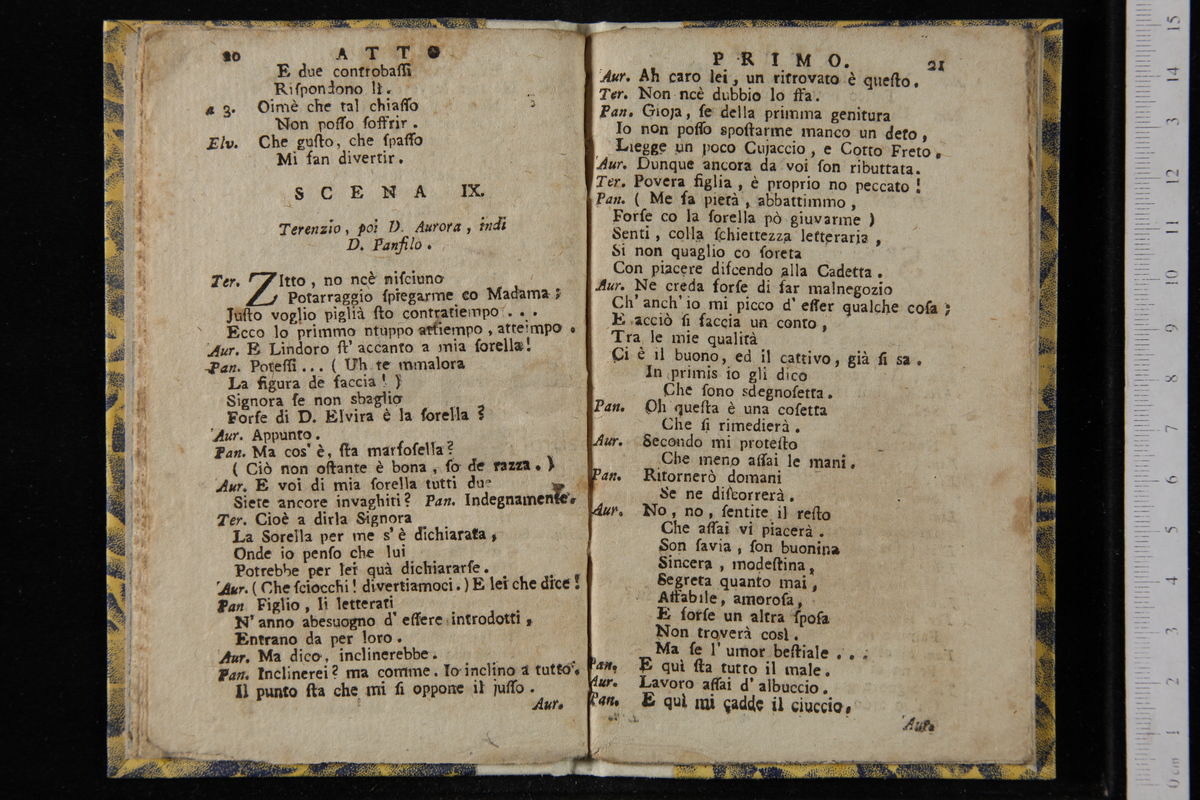 20 ATTO
E due controbaſſi
Riſpondono lì.
a 3. Oimè che tal chiaſſo
Non poſſo ſoffrir.
Elv. Che guſto, che ſpaſſo
Mi fan divertir.
SCENA IX.
Terenzio, poi D. Aurora, indi
D. Panfilo.
Ter. ZItto, no ncè niſciuno
Potarraggio ſpiegarme co Madama;
Juſto voglio piglià ſto contratiempo...
Ecco lo primmo ntuppo attiempo, atteimpo.
Aur. E Lindoro ſt' accanto a mia ſorella!
Pan. Poteſſi... ( Uh te mmalora
La figura de faccia! )
Signora ſe non sbaglio
Forſe di D. Elvira è la ſorella?
Aur. Appunto.
Pan. Ma cos' è, ſta marfoſella?
( Ciò non oſtante è bona, ſo de razza. )
Aur. E voi di mia ſorella tutti due
Siete ancore invaghiti? Pan. Indegnamente.
Ter. Cioè a dirla Signora
La Sorella per me s' è dichiarata,
Onde io penſo che lui
Potrebbe per lei quà dichiararſe.
Aur. ( Che ſciocchi! divertiamoci. ) E lei che dice!
Pan Figlio, li letterati
N' anno abeſuogno d' eſſere introdotti,
Entrano da per loro.
Aur. Ma dico, inclinerebbe.
Pan. Inclinerei? ma comme. Io inclino a tutto.
Il punto ſta che mi ſi oppone il juſſo.
Aur.
PRIMO. 21
Aur. Ah caro lei, un ritrovato è queſto.
Ter. Non ncè dubbio lo ſſa.
Pan. Gioja, ſe della primma genitura
Io non poſſo spoſtarme manco un deto,
Liegge un poco Cujaccio, e Cotto Freto.
Aur. Dunque ancora da voi ſon ributtata.
Ter. Povera figlia, è proprio no peccato!
Pan. ( Me fa pietà, abbattimmo,
Forſe co la ſorella pò giuvarme )
Senti, colla ſchiettezza letteraria,
Si non quaglio co ſoreta
Con piacere diſcendo alla Cadetta.
Aur. Ne creda forſe di far malnegozio
Ch' anch' io mi picco d' eſſer qualche coſa;
E acciò ſi faccia un conto,
Tra le mie qualità
Ci è il buono, ed il cattivo, già ſi sa.
In primis io gli dico
Che ſono sdegnoſetta.
Pan. Oh queſta è una coſetta
Che ſi rimedierà.
Aur. Secondo mi proteſto
Che meno aſſai le mani.
Pan. Ritornerò domani
Se ne diſcorrerà.
Aur. No, no, ſentite il reſto
Che aſſai vi piacerà.
Son ſavia, ſon buonina
Sincera, modeſtina,
Segreta quanto mai,
Affabile, amoroſa,
E forſe un altra ſpoſa
Non troverà così.
Ma ſe l' umor beſtiale...
Pan. E quì ſta tutto il male.
Aur. Lavoro aſſai d' albuccio.
Pan. E quì mi cadde il ciuccio.
Aur.